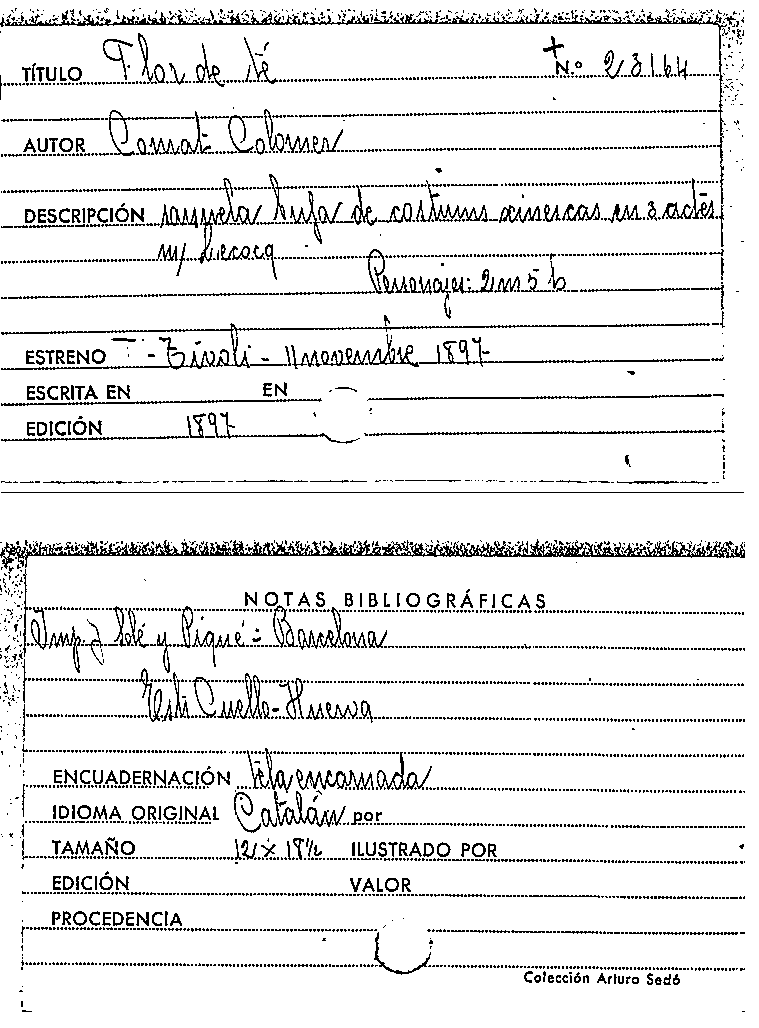 TÍTULO Flor de té N.º 23164
AUTOR Conrat Colomer
DESCRIPCIÓN sarzuela bufa de costums xinescas en 3 actes
m/ Lecocq
Personajes: 2 m 5 h
ESTRENO T - Tívoli - 11 novembre 1897
ESCRITA EN EN
EDICIÓN 1897
NOTAS BIBLIOGRÁFICAS
Imp. J Solé y Piqué - Barcelona
Cuello-Huerva
ENCUADERNACIÓN tela encarnada
IDIOMA ORIGINAL Catalán por
TAMAÑO 12 x 18½ ILUSTRADO POR
EDICIÓN VALOR
PROCEDENCIA
Colección Arturo Sedó